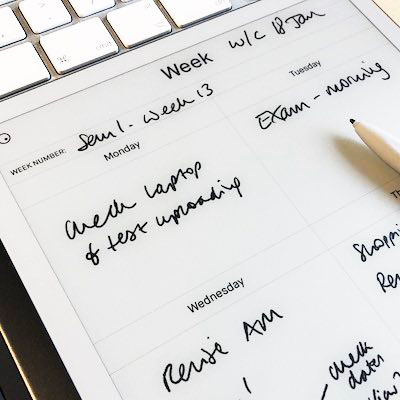 Week w/c 18 Jan
WEEK NUMBER: Sem 1 - week 13
Monday
check laptop
& test uploading
Tuesday
Exam - morning
Wednesday
Revise AM
Th
Shoppi
Re
check
dates